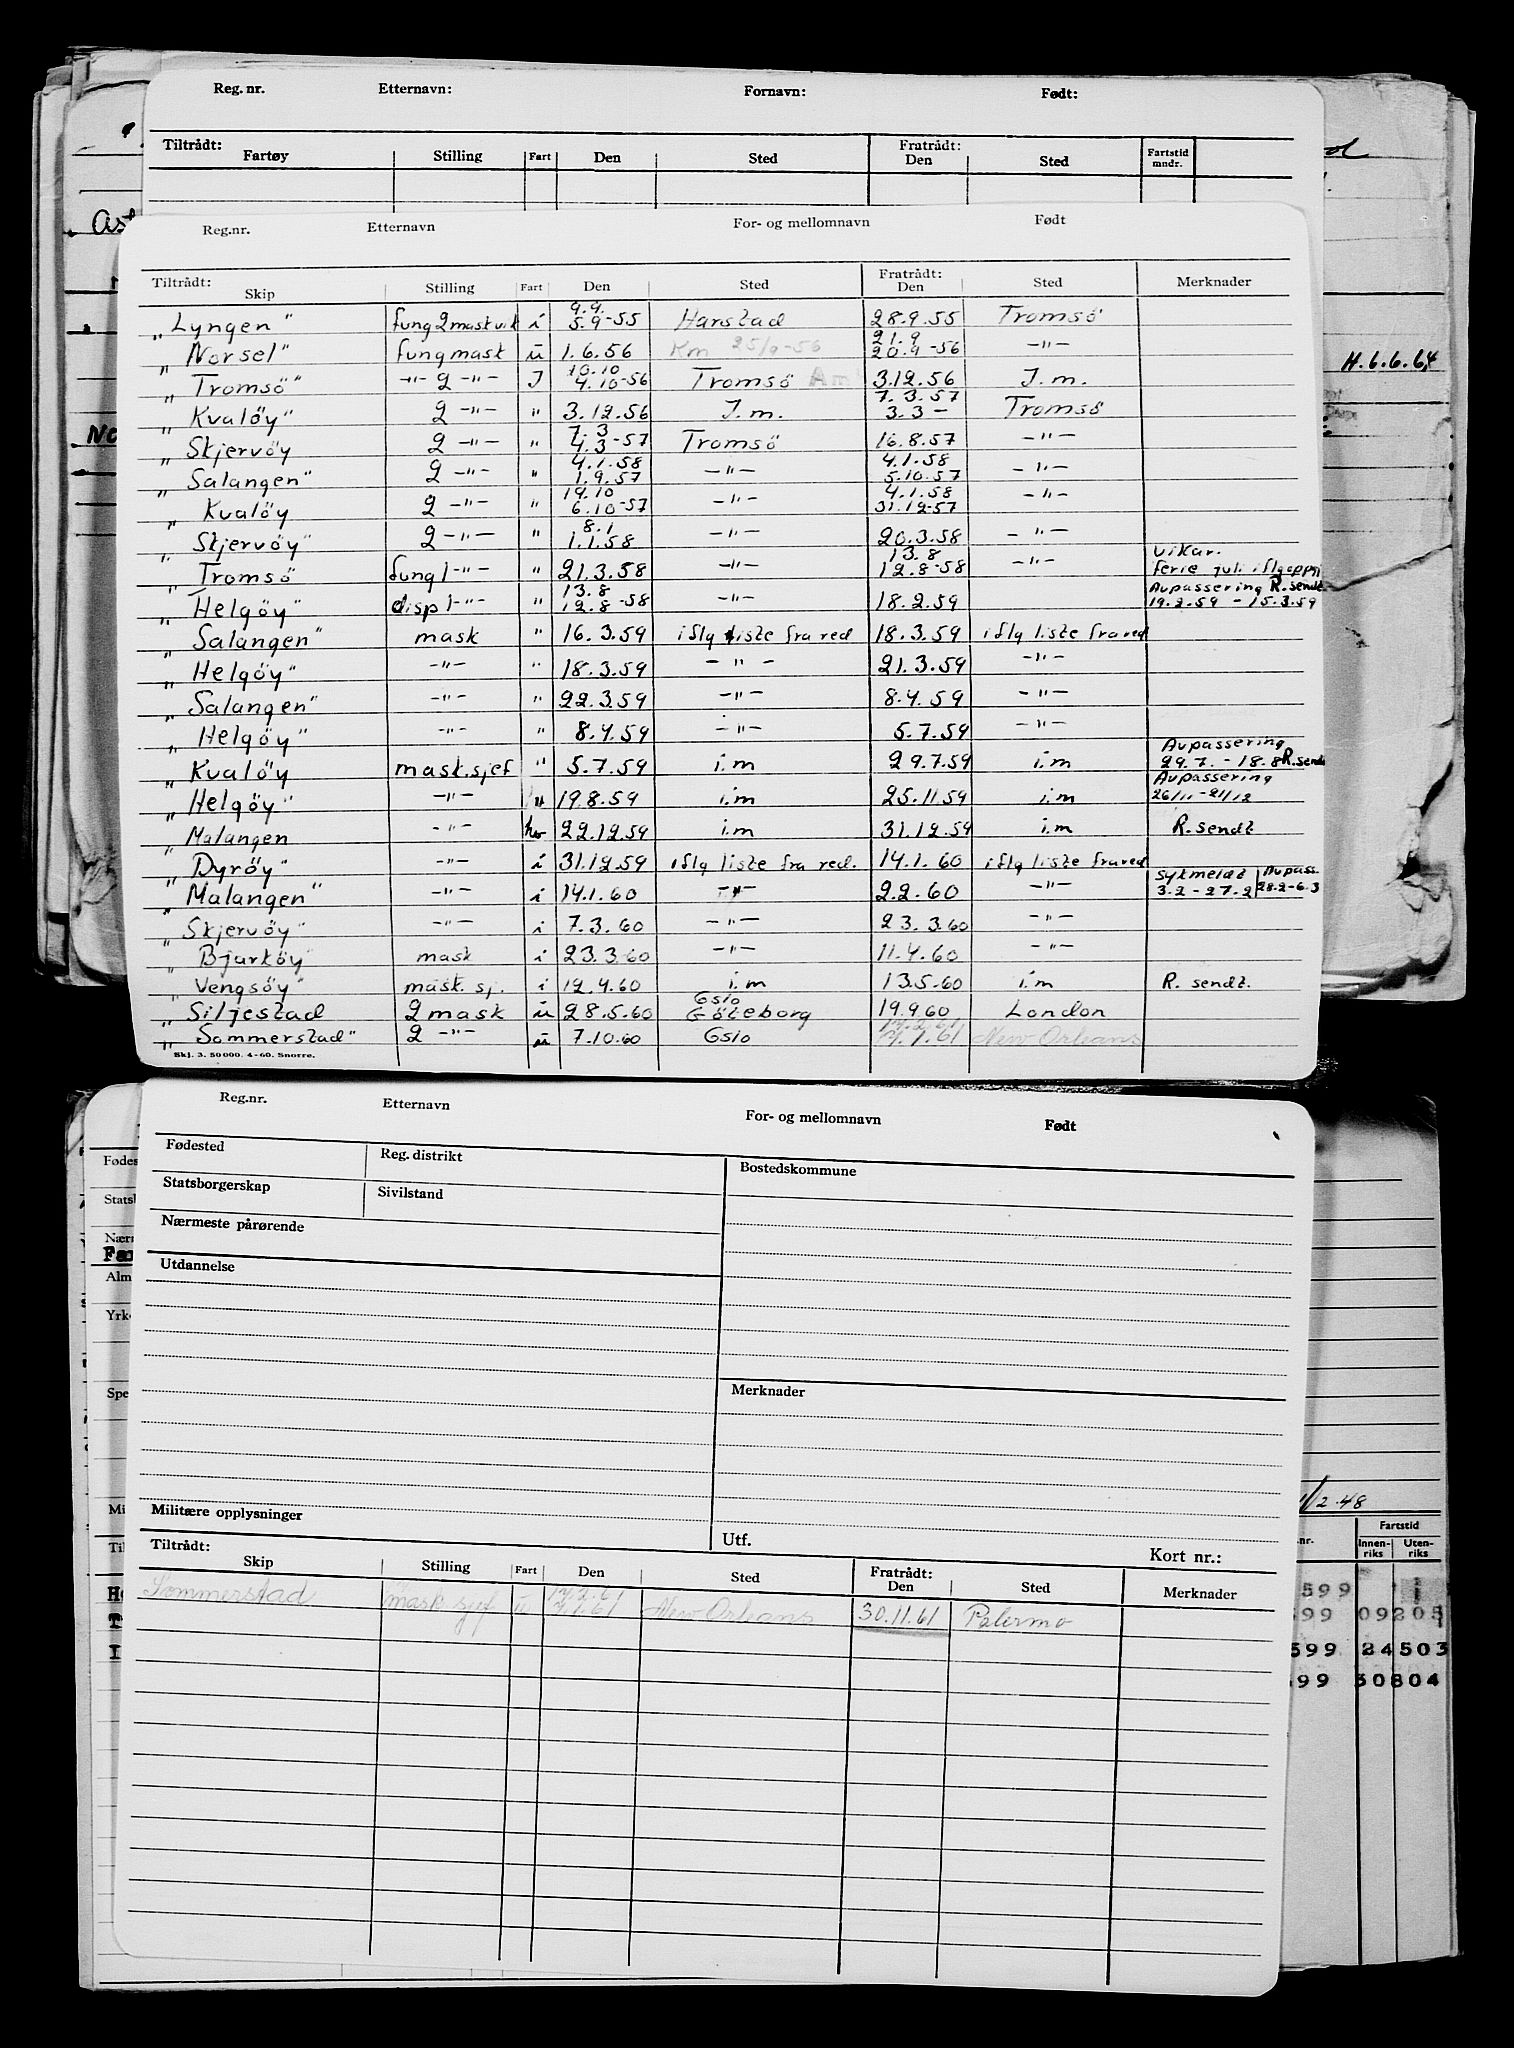 Reg. nr. Etternavn: Fornavn: Født:
Tiltrådt: Fratrådt:
Fartøy Stilling Fart Den Sted Den Sted Fartstid mndr.
H.6.6.64
Reg.nr. Etternavn For- og mellomnavn Født
Tiltrådt: Fratrådt:
Skip Stilling Fart Den Sted Den Sted Merknader
„Lyngen" fung 2 mask vik i 9.9. 5.9-55 Harstad 28.9.55 Tromsö
„Norsel" fung mask ü 1.6.56 Km 25/9-56 21.9 20.9-56 -"-
„Tromsö" -"- 2 -"- I 10.10 4.10-56 Tromsö Am 3.12.56 I.m.
„Kvalöy" 2 -"- " 3.12.56 I.m. 7.3.57 3.3- Tromsö
„Skjervöy 2 -"- " 7.3 4.3-57 Tromsö 16.8.57 -"-
„Salangen" 2 -"- " 4.1.58 1.9.57 -"- 4.1.58 5.10.57 -"-
„Kvalöy 2 -"- " 19.10 6.10-57 -"- 4.1.58 31.12-57 -"-
„Skjervöy" 2 -"- " 8.1 1.1.58 -"- 20.3.58 -"-
„Tromsö fung 1 -"- " 21.3.58 -"- 13.8 12.8-58 -"- vikar. ferie juli iflg oppg
„Helgöy" disp 1 -"- " 13.8 12.8-58 -"- 18.2.59 Avpassering R. sendt 19.2.59 - 15.3.59
„Salangen" mask " 16.3.59 iflg liste fra red 18.3.59 iflg liste fra red
„Helgöy" -"- " 18.3.59 -"- 21.3.59 -"-
„Salangen" -"- " 22.3.59 -"- 8.4.59 -"-
„Helgöy" -"- " 8.4.59 -"- 5.7.59 -"-
„Kvalöy mask.sjef " 5.7.59 i.m 29.7.59 i.m Avpassering 29.7. - 18.8 R.sendt
„Helgöy" -"- " 19.8.59 i.m 25.11.59 i.m Avpassering 26/11-21/12
„Malangen -"- hv 22.12.59 i.m 31.12.59 i.m R. sendt
„Dyröy" -"- i 31.12.59 iflg liste fra red. 14.1.60 iflg liste fra red
„Malangen" -"- i 14.1.60 -"- 2.2.60 -"- Sykmeldt 3.2 - 27.2 Avpass. 28.2-6.3
„Skjervöy" -"- i 7.3.60 -"- 23.3.60 -"-
„Bjarköy mask i 23.3.60 -"- 11.4.60 -"-
„Vengsöy" mask. sj. i 12.4.60 i.m 13.5.60 i.m R. sendt.
„Siljestad 2 mask ü 28.5.60 Oslo Göteborg 19.9.60 London
„Sommerstad" 2 -"- ü 7.10.60 Oslo 14.2.61 4.1.61 New Orleans
Skj. 3. 50000. 4-60. Snorre.
Reg.nr. Etternavn For- og mellomnavn Født
Fødested Reg. distrikt Bostedskommune
Statsborgerskap Sivilstand
Nærmeste pårørende
Utdannelse
Merknader
Militære opplysninger
Utf. Kort nr.:
/2.48
Tiltrådt: Fratrådt:
Skip Stilling Fart Den Sted Den Sted Merknader
Sommerstad mask sjef ü 14.2.61 4.1.61 New Orleans 30.11.61 Palermo
Fartstid
Innenriks Utenriks
599
599 09205
599 24503
599 30804